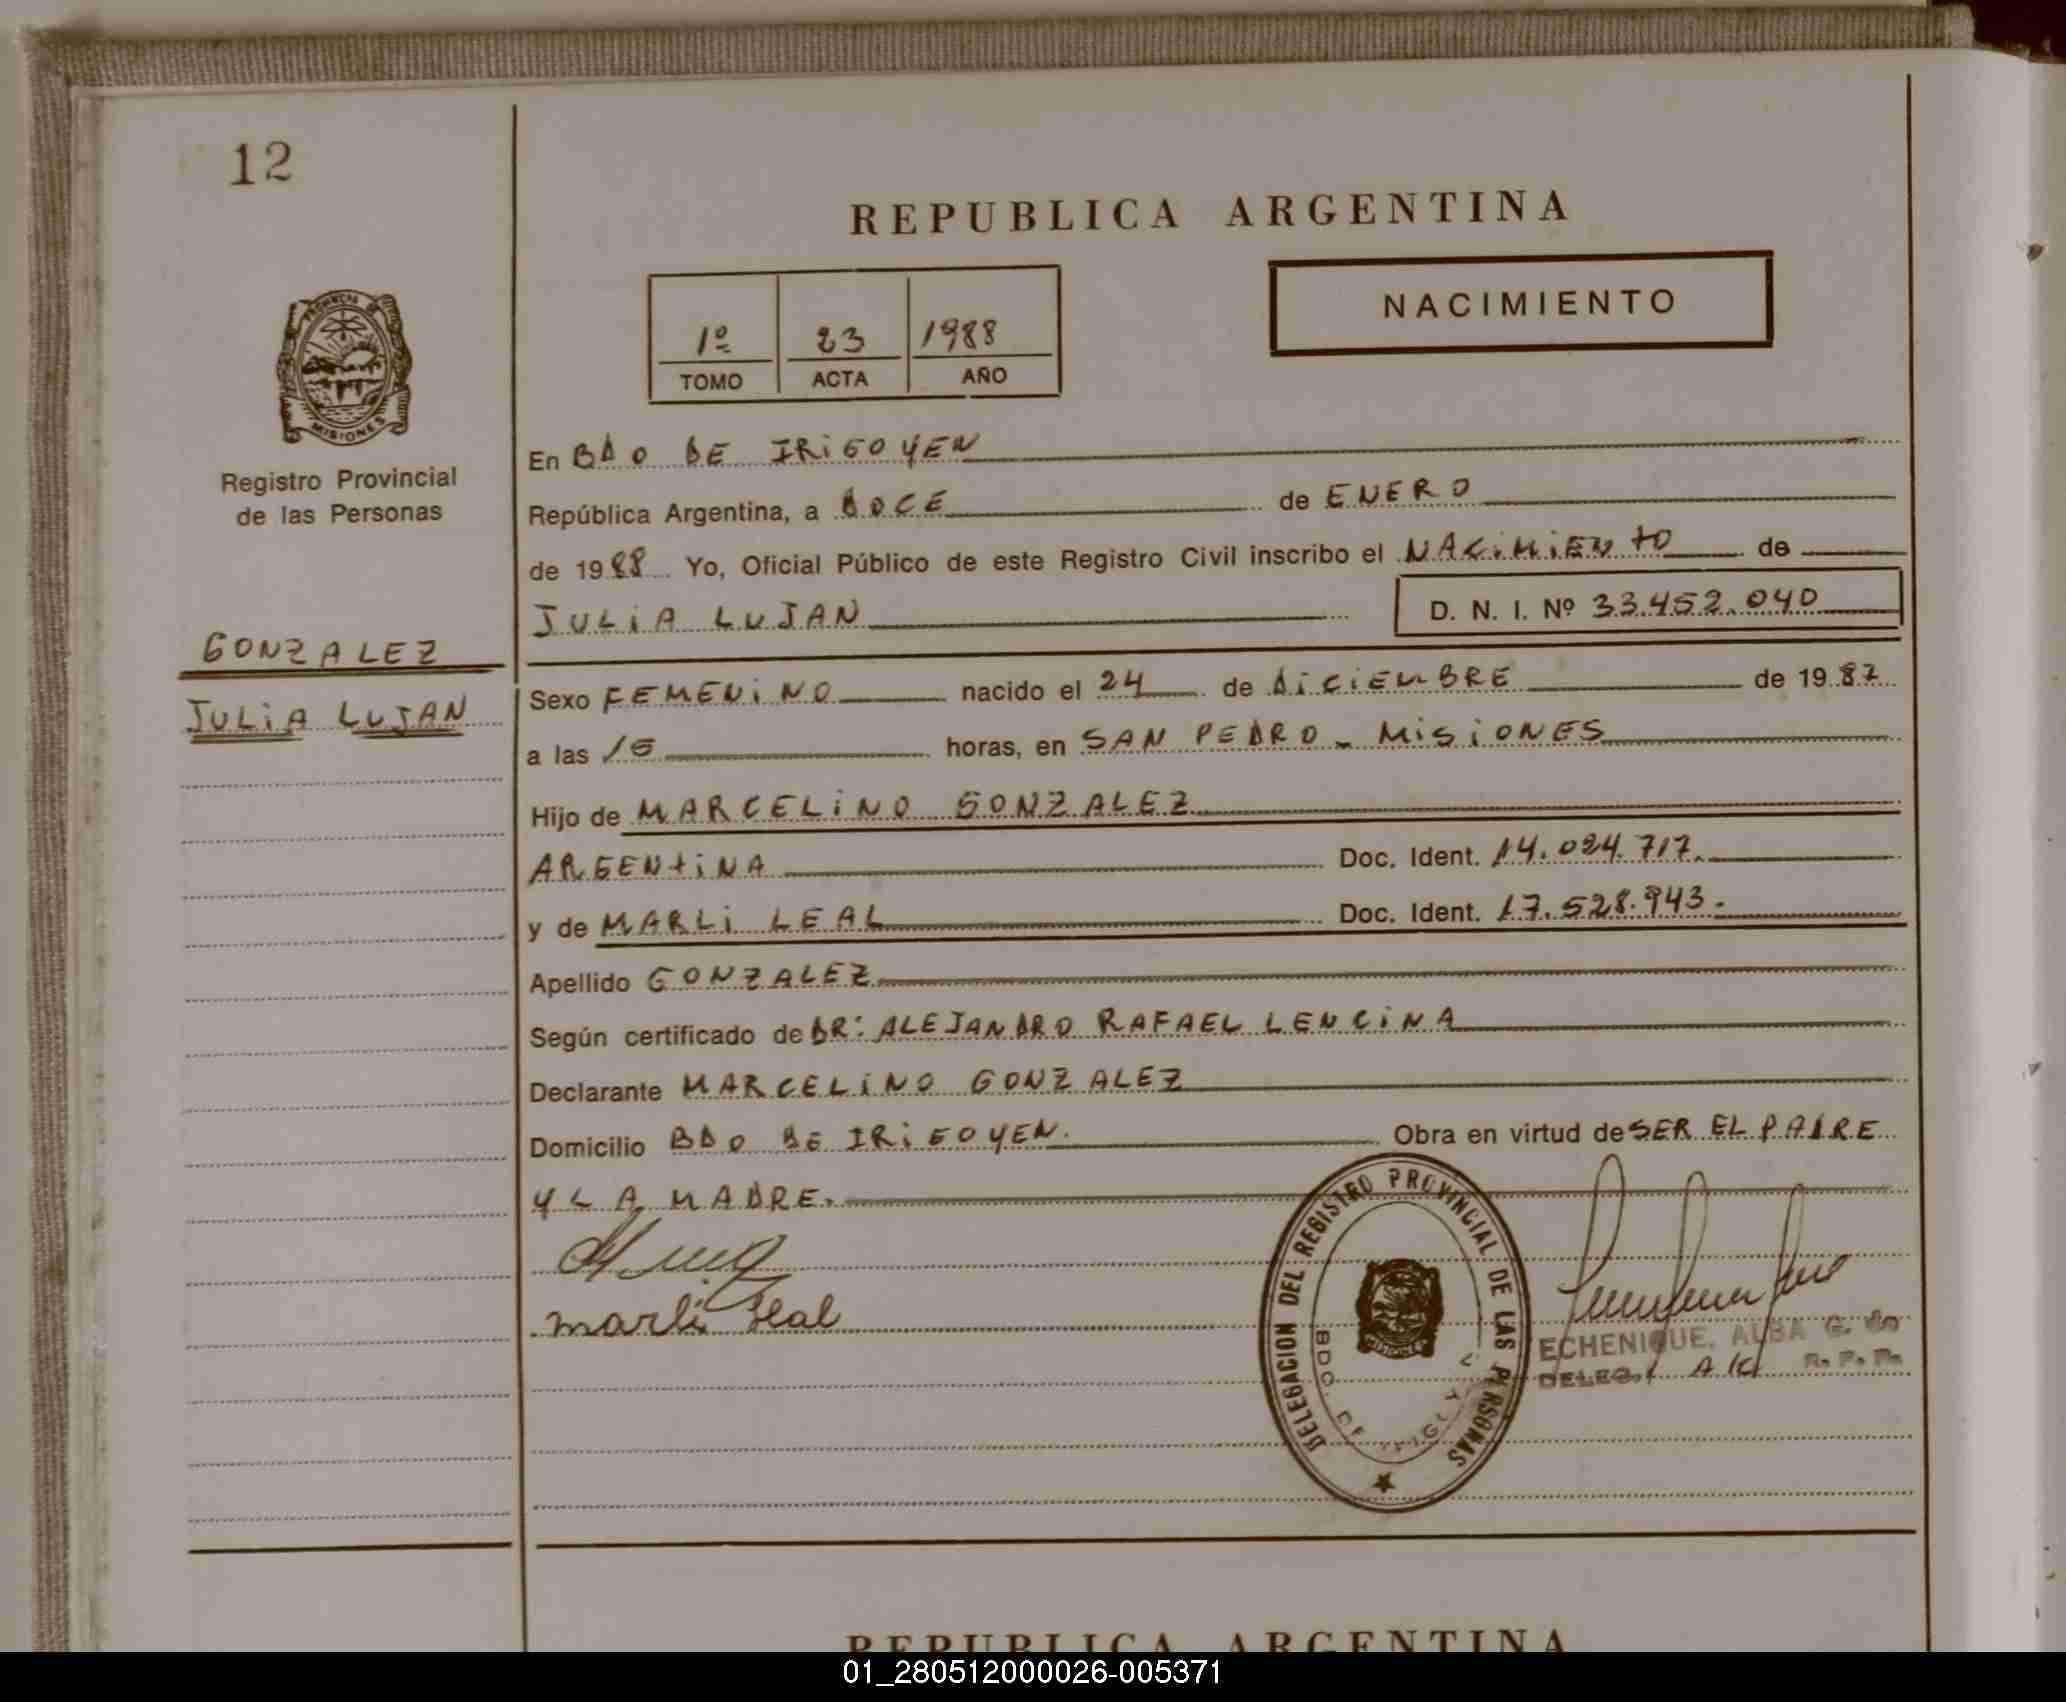 12
REPUBLICA ARGENTINA
NACIMIENTO
1º 23 1988
TOMO ACTA AÑO
PROVINCIA DE
MISIONES
Registro Provincial
de las Personas
GONZALEZ
JULIA LUJAN
En BDO DE IRIGOYEN
República Argentina, a DOCE de ENERO
de 1988 Yo, Oficial Público de este Registro Civil inscribo el NACIMIENTO de
JULIA LUJAN D. N. I. Nº 33.452.040
Sexo FEMENINO nacido el 24 de DICIEMBRE de 1987
a las horas, en SAN PEDRO - MISIONES
Hijo de MARCELINO GONZALEZ
ARGENTINA Doc. Ident. 14.024.717.
y de MARLI LEAL Doc. Ident. 17.528.943.
Apellido GONZALEZ
Según certificado de DR: ALEJANDRO RAFAEL LENCINA
Declarante MARCELINO GONZALEZ
Domicilio BDO DE IRIGOYEN. Obra en virtud de SER EL PADRE
Y LA MADRE.
Marli Leal
DELEGACION DEL REGISTRO PROVINCIAL DE LAS PERSONAS
BDO. DE
MISIONES
ECHENIQUE, ALBA G. de
DELEG. R. P. P.
REPUBLICA ARGENTINA
01_280512000026-005371